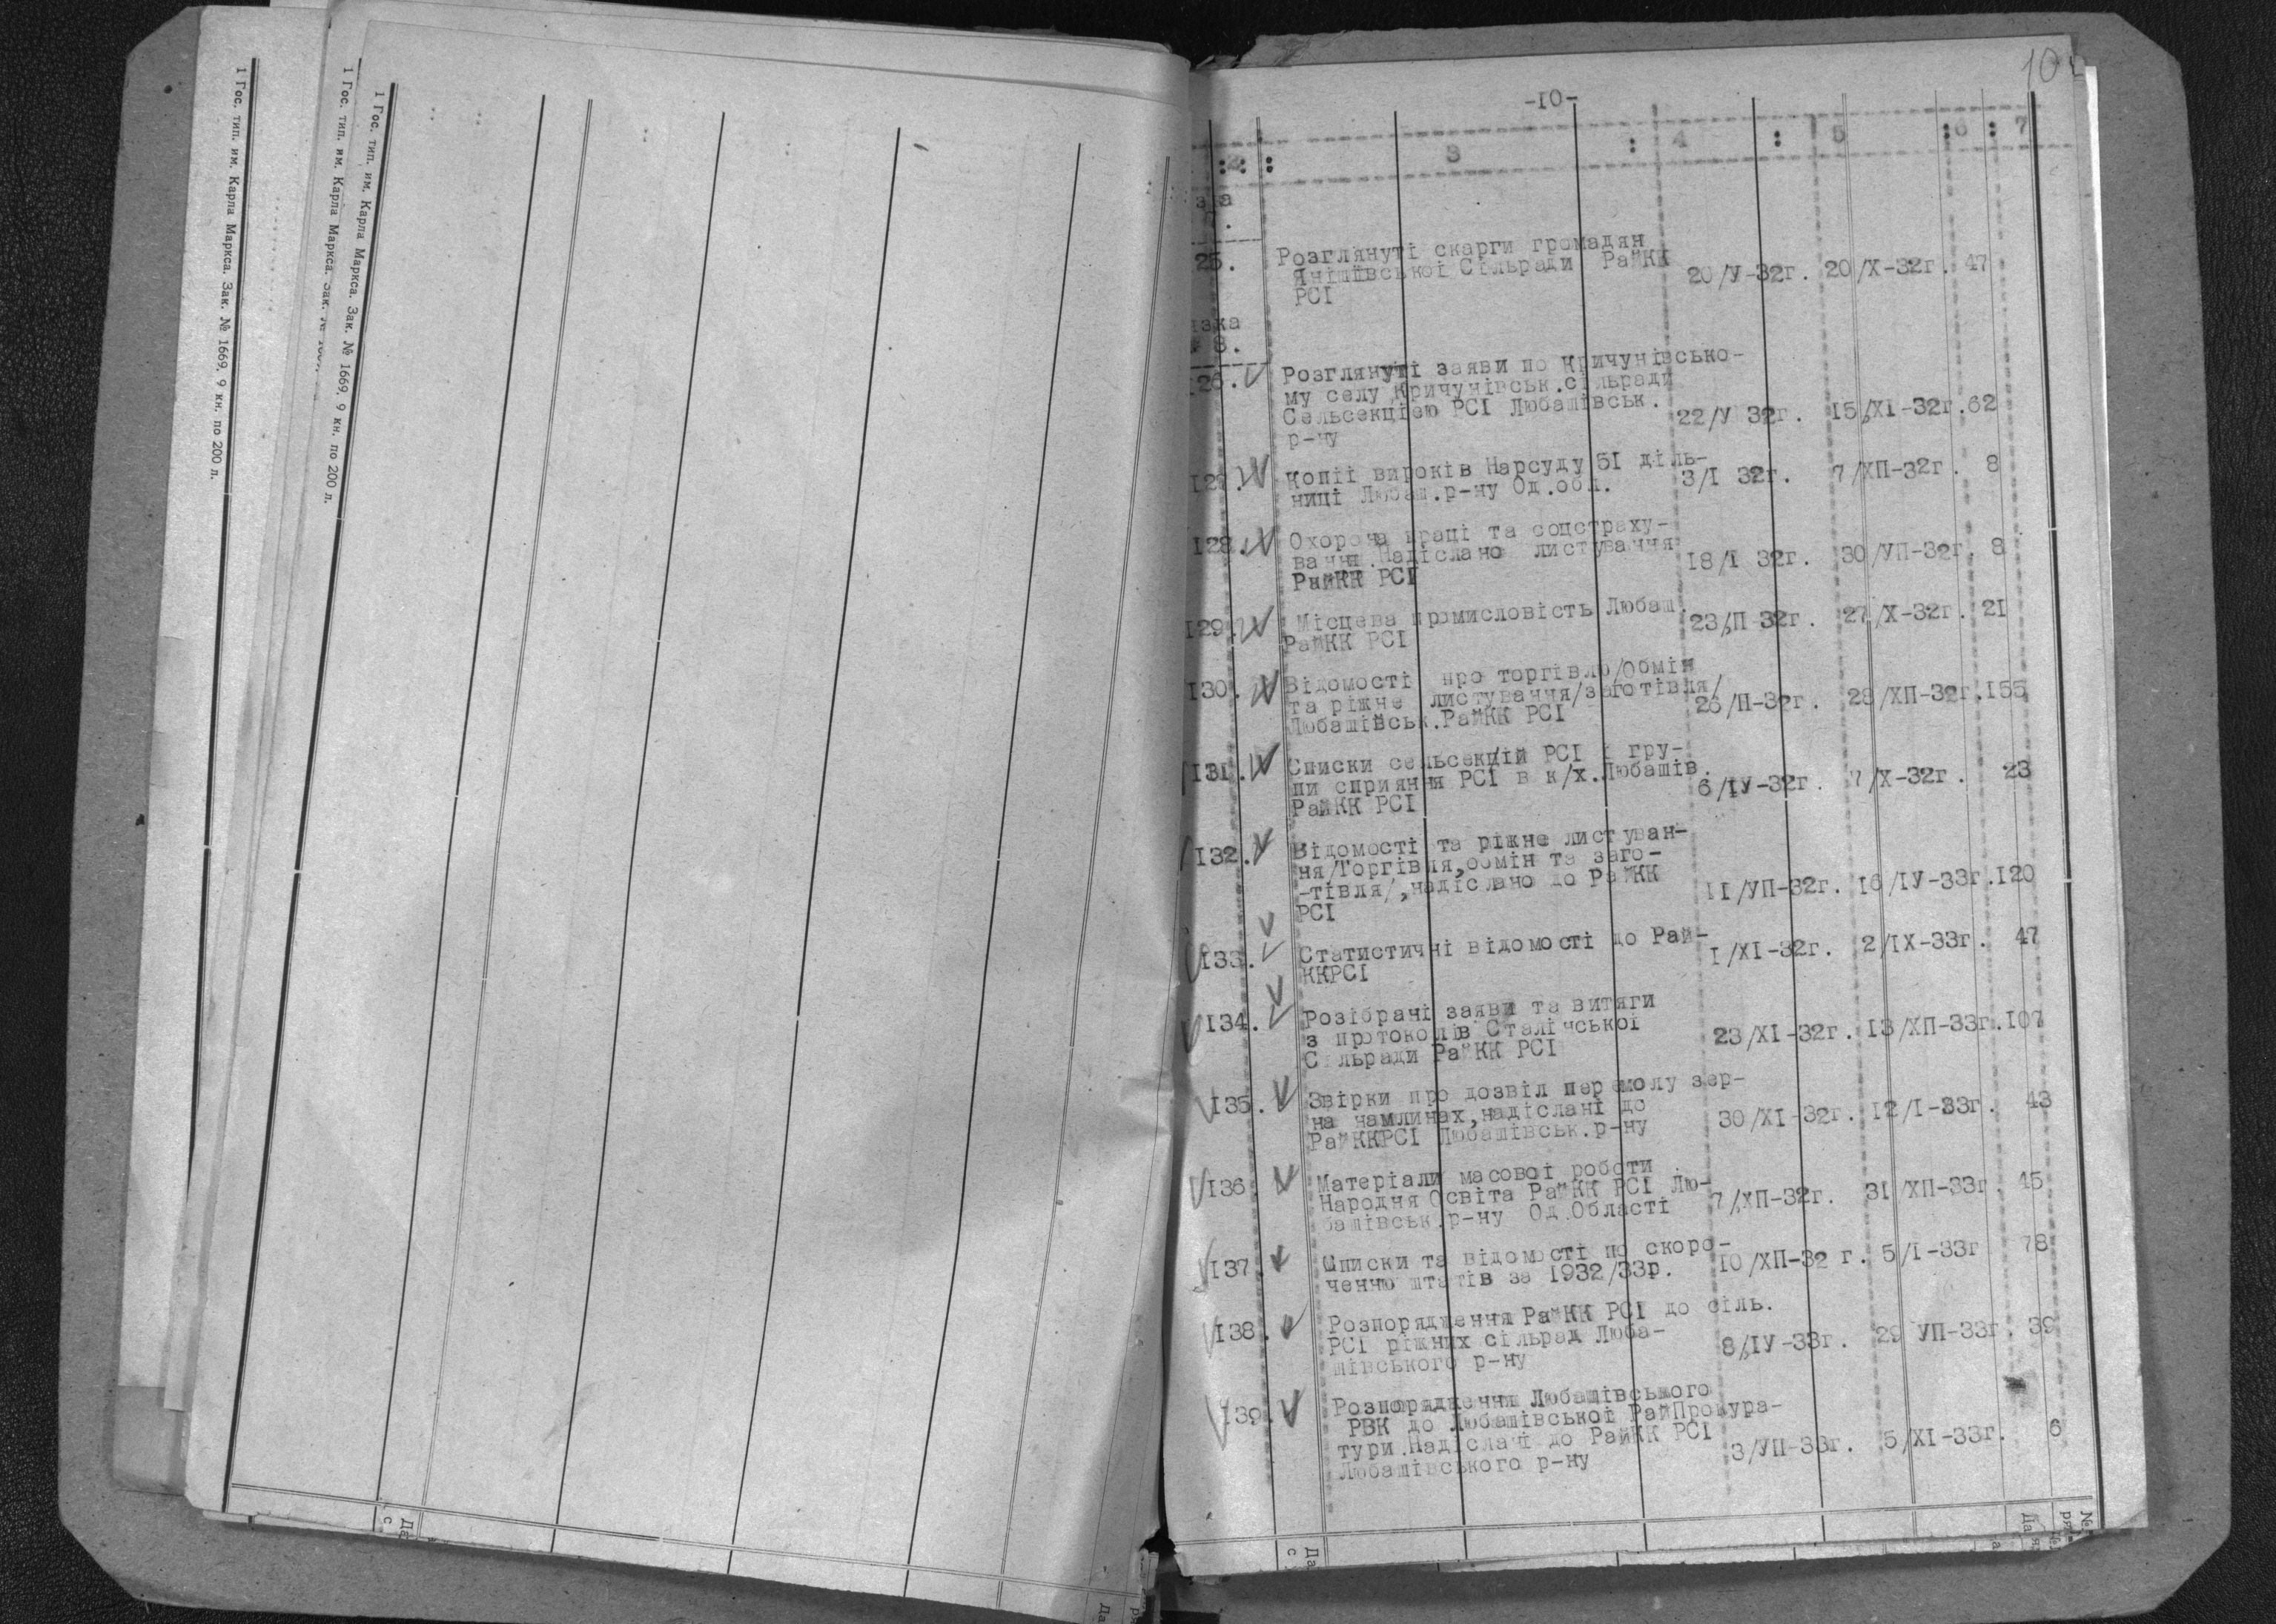 1 Гос. тип. им. Карла Маркса. Зак. № 1669. 9 кн. по 200 л.
1 Гос. тип. им. Карла Маркса.
1 Гос. тип. им. Карла Маркса. Зак. № 1669. 9 кн. по 200 л.
10
-10-
:2: 3 : 4 : 5 :6: 7
25. Розглянуті скарги громадян
Сільради РайКК
РСІ 20/У-32г. 20/Х-32г. 47
8.
26. Розглянуті заяви по Кричунівсько-
му селу Кричунівськ.сільради
Сельсекцією РСІ Любашівськ.
р-ну 22/У 32г. 15/ХІ-32г. 62
127. Копії вироків Нарсуду 51 діль-
ниці Любаш.р-ну Од.обл. 3/І 32г. 7/ХП-32г. 8
128. Охорона праці та соцстраху-
вання.Надіслано листування
РайКК РСІ 18/І 32г. 30/УП-32г. 8
129. Місцева промисловість Любаш.
РайКК РСІ 23/П-32г. 27/Х-32г. 21
130. Відомості про торгівлю/обмін
та ріжне листування/заготівля/
Любашівськ.РайКК РСІ 26/П-32г. 28/ХП-32г. 155
131. Списки сельсекцій РСІ і гру-
пи сприяння РСІ в к/х.Любашів.
РайКК РСІ 6/ІУ-32г. 7/Х-32г. 23
132. Відомості та ріжне листуван-
ня/Торгівля,обмін та заго-
-тівля/,надіслано до РайКК
РСІ 11/УП-32г. 16/ІУ-33г. 120
133. Статистичні відомості до Рай-
ККРСІ 1/ХІ-32г. 2/ІХ-33г. 47
134. Розібрані заяви та витяги
з протоколів Сталінської
Сільради РайКК РСІ 23/ХІ-32г. 13/ХП-33г. 107
135. Звірки про дозвіл перемолу зер-
на намлинах,надіслані до
РайККРСІ Любашівськ.р-ну 30/ХІ-32г. 12/І-33г. 43
136 Матеріали масової роботи
Народня Освіта РайКК РСІ Лю-
башівськ.р-ну Од.Області 7/ХП-32г. 31/ХП-33г. 45
137. Списки та відомості по скоро-
ченню штатів за 1932/33р. 10/ХП-32 г. 5/І-33г 78
138. Розпорядження РайКК РСІ до сіль.
РСІ ріжних сільрад Люба-
шівського р-ну 8/ІУ-33г. 29 УП-33г. 39
139. Розпорядження Любашівського
РВК до Любашівської РайПрокура-
тури.Надіслані до РайКК РСІ
Любашівського р-ну 3/УП-33г. 5/ХІ-33г. 6